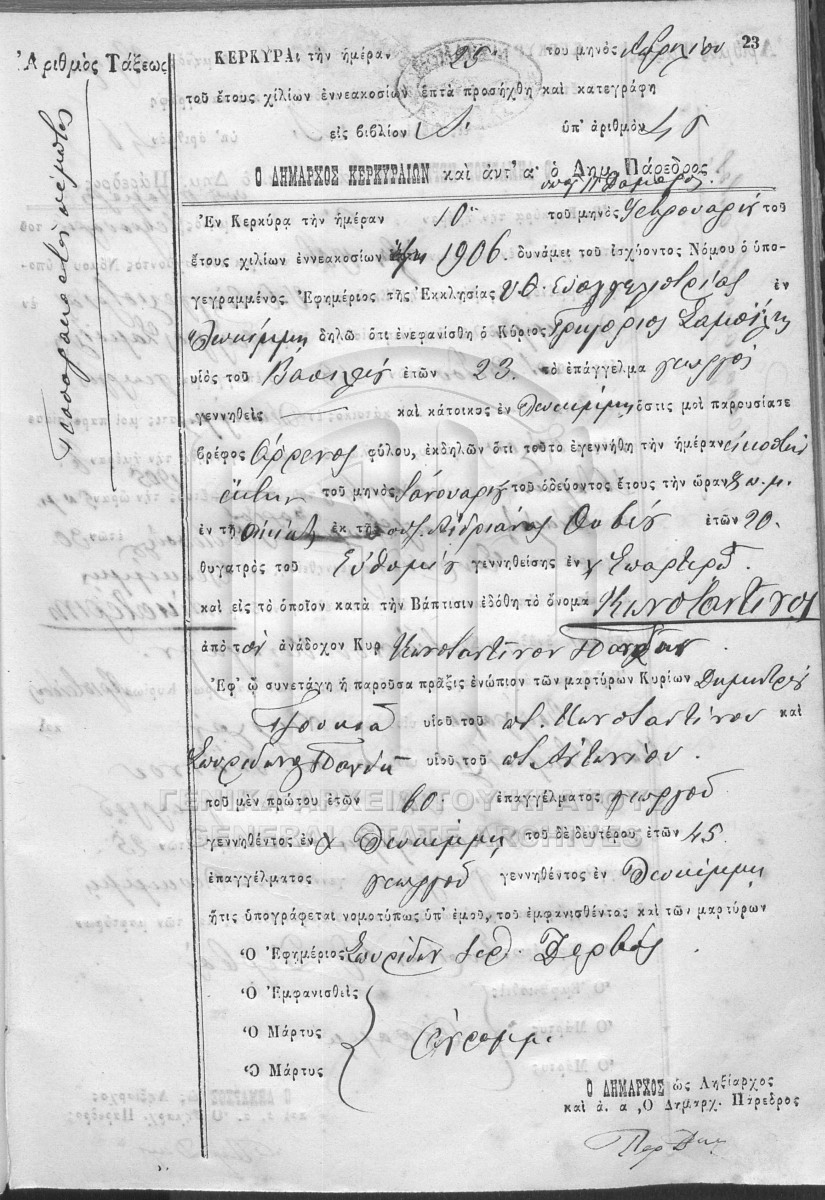 23
Ἀριθμὸς Τάξεως
ΚΕΡΚΥΡΑ, τὴν ἡμέραν 25 τοῦ μηνὸς Ἀπριλίου
τοῦ ἔτους χιλίων ἐννεακοσίων ἑπτὰ προσήχθη καὶ κατεγράφη
εἰς βιβλίον Α' ὑπ' ἀριθμὸν
Ο ΔΗΜΑΡΧΟΣ ΚΕΡΚΥΡΑΙΩΝ καὶ ἀντ' α' ὁ Δημ. Πάρεδρος
Ἐν Κερκύρᾳ τὴν ἡμέραν 10 τοῦ μηνὸς Φεβρουαρίου τοῦ
ἔτους χιλίων ἐννεακοσίων 1906. δυνάμει τοῦ ἰσχύοντος Νόμου ὁ ὑπο-
γεγραμμένος Ἐφημέριος τῆς Ἐκκλησίας Υ.Θ. Εὐαγγελιστρίας ἐν
Λευκίμμῃ δηλῶ ὅτι ἐνεφανίσθη ὁ Κύριος Γρηγόριος Σαμοΐλης
υἱὸς τοῦ Βασιλείου ἐτῶν 23. τὸ ἐπάγγελμα γεωργὸς
γεννηθεὶς καὶ κάτοικος ἐν Λευκίμμῃ ὅστις μοὶ παρουσίασε
βρέφος ἄρρενος φύλου, ἐκδηλῶν ὅτι τοῦτο ἐγεννήθη τὴν ἡμέραν εἰκοστὴν
ἕκτην τοῦ μηνὸς Ἰανουαρίου τοῦ ὁδεύοντος ἔτους τὴν ὥραν 8 π.μ.
ἐν τῇ οἰκίᾳ ἐκ τῆς συζ. Ἀνδριάνας ἐτῶν 20.
θυγατρὸς τοῦ Εὐθυμίου γεννηθείσης ἐν χ. Σπαρτερᾶ
καὶ εἰς τὸ ὁποῖον κατὰ τὴν Βάπτισιν ἐδόθη τὸ ὄνομα Κωνσταντῖνος
ἀπὸ τὸν ἀνάδοχον Κυρ Κωνσταντῖνον Πανδῆν
Ἐφ' ᾧ συνετάγη ἡ παροῦσα πρᾶξις ἐνώπιον τῶν μαρτύρων Κυρίων Δημητρίου
υἱοῦ τοῦ ποτ. Κωνσταντίνου καὶ
Σπυρίδωνος Πανδῆ υἱοῦ τοῦ ποτ. Ἀντωνίου.
τοῦ μὲν πρώτου ἐτῶν 60. ἐπαγγέλματος γεωργοῦ
γεννηθέντος ἐν χ Λευκίμμης τοῦ δὲ δευτέρου ἐτῶν 45
ἐπαγγέλματος γεωργοῦ γεννηθέντος ἐν Λευκίμμης
ἥτις ὑπογράφεται νομοτύπως ὑπ' ἐμοῦ, τοῦ ἐμφανισθέντος καὶ τῶν μαρτύρων
Ὁ Ἐφημέριος Σπυρίδων Ἱερ. Δερβὸς
Ὁ Ἐμφανισθεὶς
Ὁ Μάρτυς
Ὁ Μάρτυς
ἀγράμμ.
Ο ΔΗΜΑΡΧΟΣ ὡς Ληξίαρχος
καὶ ἀ. α, Ὁ Δημαρχ. Πάρεδρος
ΓΕΝΙΚΑ ΑΡΧΕΙΑ ΤΟΥ ΚΡΑΤΟΥΣ
GENERAL STATE ARCHIVES